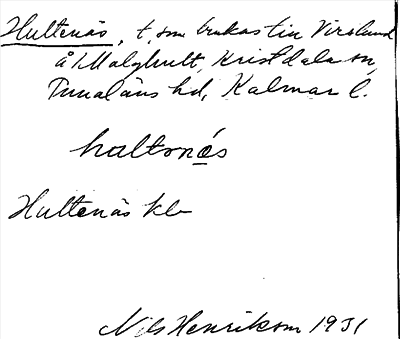 Hultenäs, t, som brukas tin Virslund
å 1 Malghult, Kristdala sn,
Tunaläns hd, Kalmar l.
haltonäs
Hultenäs kl
Nils Henrikson 1931